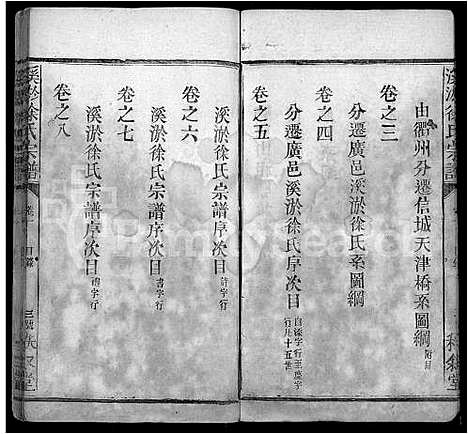 溪淤徐氏宗譜
由衢州分遷信城天津橋系圖綱 附目
卷之三
分遷廣邑溪淤徐氏系圖綱
卷之四
分遷廣邑溪淤徐氏序次目 自濚字行至
行凡十五世
卷之五
溪淤徐氏宗譜序次目 詩字行
卷之六
溪淤徐氏宗譜序次目 書字行
卷之七
溪淤徐氏宗譜序次目 禮字行
卷之八
溪淤徐氏宗譜
卷一
目錄
FamilySearch